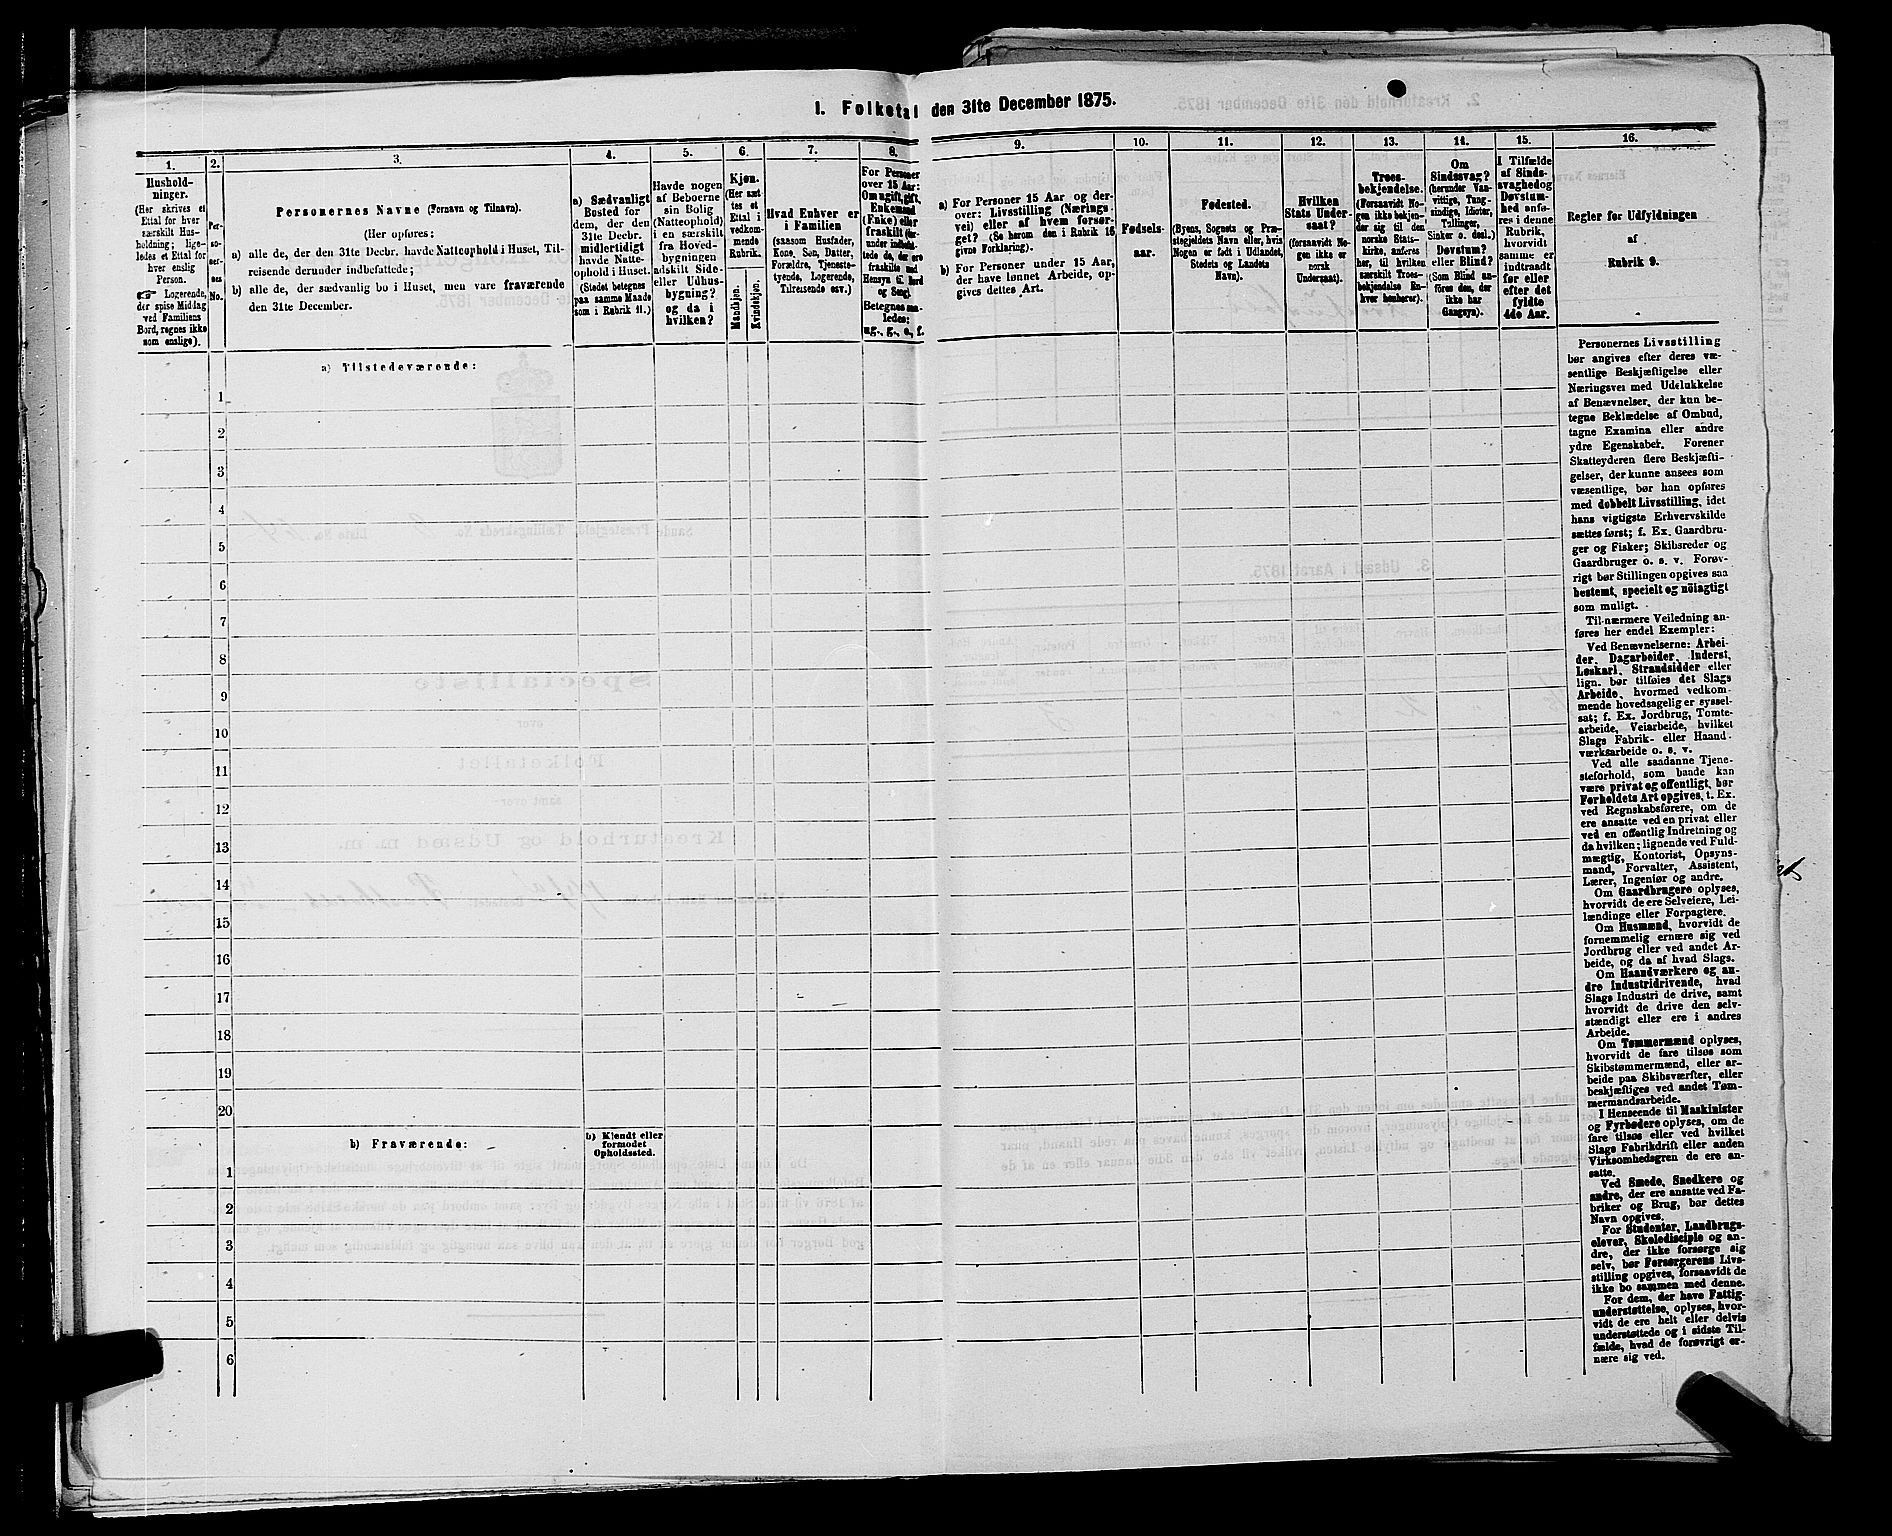 1. Folketal den 31te December 1875.
1.
2.
3.
4.
5.
6.
7.
8.
9.
10.
11.
12.
13.
14.
15.
16.
Hushold-
ninger.
(Her skrives et
Ettal for hver
særskilt Hus-
holdning; lige-
ledes et Ettal for
hver enslig
Person.
☞ Logerende,
der spise Middag
ved Familiens
Bord, regnes ikke
som enslige).
Per-
so-
ner-
nes
No.
Personernes Navne (Fornavn og Tilnavn).
(Her opføres:
a) alle de, der den 31te Decbr. havde Natteophold i Huset, Til-
reisende derunder indbefattede;
b) alle de, der sædvanlig bo i Huset, men vare fraværende
den 31te December.
a) Sædvanligt
Bosted for
dem, der den
31te Decbr.
midlertidigt
havde Natte-
ophold i Huset.
(Stedet betegnes
paa samme Maade
som i Rubrik 11.)
Havde nogen
af Beboerne
sin Bolig
(Natteophold)
i en særskilt
fra Hoved-
bygningen
adskilt Side-
eller Udhus-
bygning?
og da i
hvilken?
Kjøn.
(Her sæt-
tes et
Ettal i
vedkom-
mende
Rubrik.
Mandkjøn.
Kvindekjøn.
Hvad Enhver er
i Familien
(saasom Husfader,
Kone, Søn, Datter,
Forældre, Tjeneste-
tyende, Logerende,
Tilreisende osv.)
For Personer
over 15 Aar:
Om ugift, gift,
Enkemand
(Enke) eller
fraskilt (her-
under indbefat-
tede de, der ere
fraskilte med
Hensyn til Bord
og Seng).
Betegnes saa-
ledes:
ug., g., e., f.
a) For Personer 15 Aar og der-
over: Livsstilling (Nærings-
vei) eller af hvem forsør-
get? (Se herom den i Rubrik 16
givne Forklaring).
b) For Personer under 15 Aar,
der have lønnet Arbeide, op-
gives dettes Art.
Fødsels-
aar.
Fødested.
(Byens, Sognets og Præ-
stegjeldets Navn eller, hvis
Nogen er født i Udlandet,
Stedets og Landets
Navn).
Hvilken
Stats Under-
saat?
(forsaavidt No-
gen ikke er
norsk
Undersaat).
Troes-
bekjendelse.
(Forsaavidt No-
gen ikke bekjen-
der sig til den
norske Stats-
kirke, anføres
her, til hvilken
særskilt Troes-
bekjendelse En-
hver henhører).
Om
Sindssvag?
(herunder Van-
vittige, Tung-
sindige, Idioter,
Tullinger,
Sinker o. desl.)
Døvstum?
eller Blind?
(Som Blind an-
føres den, der
ikke har
Gangsyn).
I Tilfælde
af Sinds-
svaghed og
Døvstum-
hed anfø-
res i denne
Rubrik,
hvorvidt
samme er
indtraadt
før eller
efter det
fyldte
4de Aar.
Regler for Udfyldningen
af
Rubrik 9.
a) Tilstedeværende:
1
2
3
4
5
6
7
8
9
10
11
12
13
14
15
16
17
18
19
20
b) Fraværende:
b) Kjendt eller
formodet
Opholdssted.
1
2
3
4
5
6
Personernes Livsstilling
bør angives efter deres væ-
sentlige Beskjæftigelse eller
Næringsvei med Udelukkelse
af Benævnelser, der kun be-
tegne Beklædelse af Ombud,
tagne Examina eller andre
ydre Egenskaber. Forener
Skatteyderen flere Beskjæfti-
gelser, der kunne ansees som
væsentlige, bør han opføres
med dobbelt Livsstilling, idet
hans vigtigste Erhvervskilde
sættes først; f. Ex. Gaardbru-
ger og Fisker; Skibsreder og
Gaardbruger o. s. v. Forøv-
rigt bør Stillingen opgives saa
bestemt, specielt og nöiagtigt
som muligt.
Til nærmere Veiledning an-
føres her endel Exempler:
Ved Benævnelserne: Arbei-
der, Dagarbeider, Inderst,
Løskarl, Strandsidder eller
lign. bør tilføies det Slags
Arbeide, hvormed vedkom-
mende hovedsagelig er syssel-
sat; f. Ex. Jordbrug, Tomte-
arbeide, Veiarbeide, hvilket
Slags Fabrik- eller Haand-
værksarbeide o. s. v.
Ved alle saadanne Tjene-
steforhold, som baade kan
være privat og offentligt, bør
Forholdets Art opgives, t. Ex.
ved Regnskabsførere, om de
ere ansatte ved en privat eller
ved en offentlig Indretning og
da hvilken; lignende ved Fuld-
mægtig, Kontorist, Opsyns-
mand, Forvalter, Assistent,
Lærer, Ingeniør og andre.
Om Gaardbrugere oplyses,
hvorvidt de ere Selveiere, Lei-
lændinge eller Forpagtere.
Om Husmænd, hvorvidt de
fornemmelig ernære sig ved
Jordbrug eller ved andet Ar-
beide, og da af hvad Slags.
Om Haandværkere og an-
dre industridrivende, hvad
Slags Industri de drive, samt
hvorvidt de drive den selv-
stændigt eller ere i andres
Arbeide.
Om Tømmermænd oplyses,
hvorvidt de fare tilsøs som
Skibstømmermænd, eller ar-
beide paa Skibsværfter, eller
beskjæftiges ved andet Tøm-
mermandsarbeide.
I Henseende til Maskinister
og Fyrbødere oplyses, om de
fare tilsøs eller ved hvilket
Slags Fabrikdrift eller anden
Virksomhedsgren de ere an-
satte.
Ved Smede, Snedkere og
andre, der ere ansatte ved Fa-
briker og Brug, bør dettes
Navn opgives.
For Studenter, Landbrugs-
elever, Skoledisciple og an-
dre, der ikke forsørge sig
selv, bør Forsørgerens Livs-
stilling opgives, forsaavidt de
ikke bo sammen med denne.
For dem, der have Fattig-
understøttelse, oplyses, hvor-
vidt de ere helt eller delvis
understøttede og i sidste Til-
fælde, hvad de forøvrigt er-
nære sig ved.